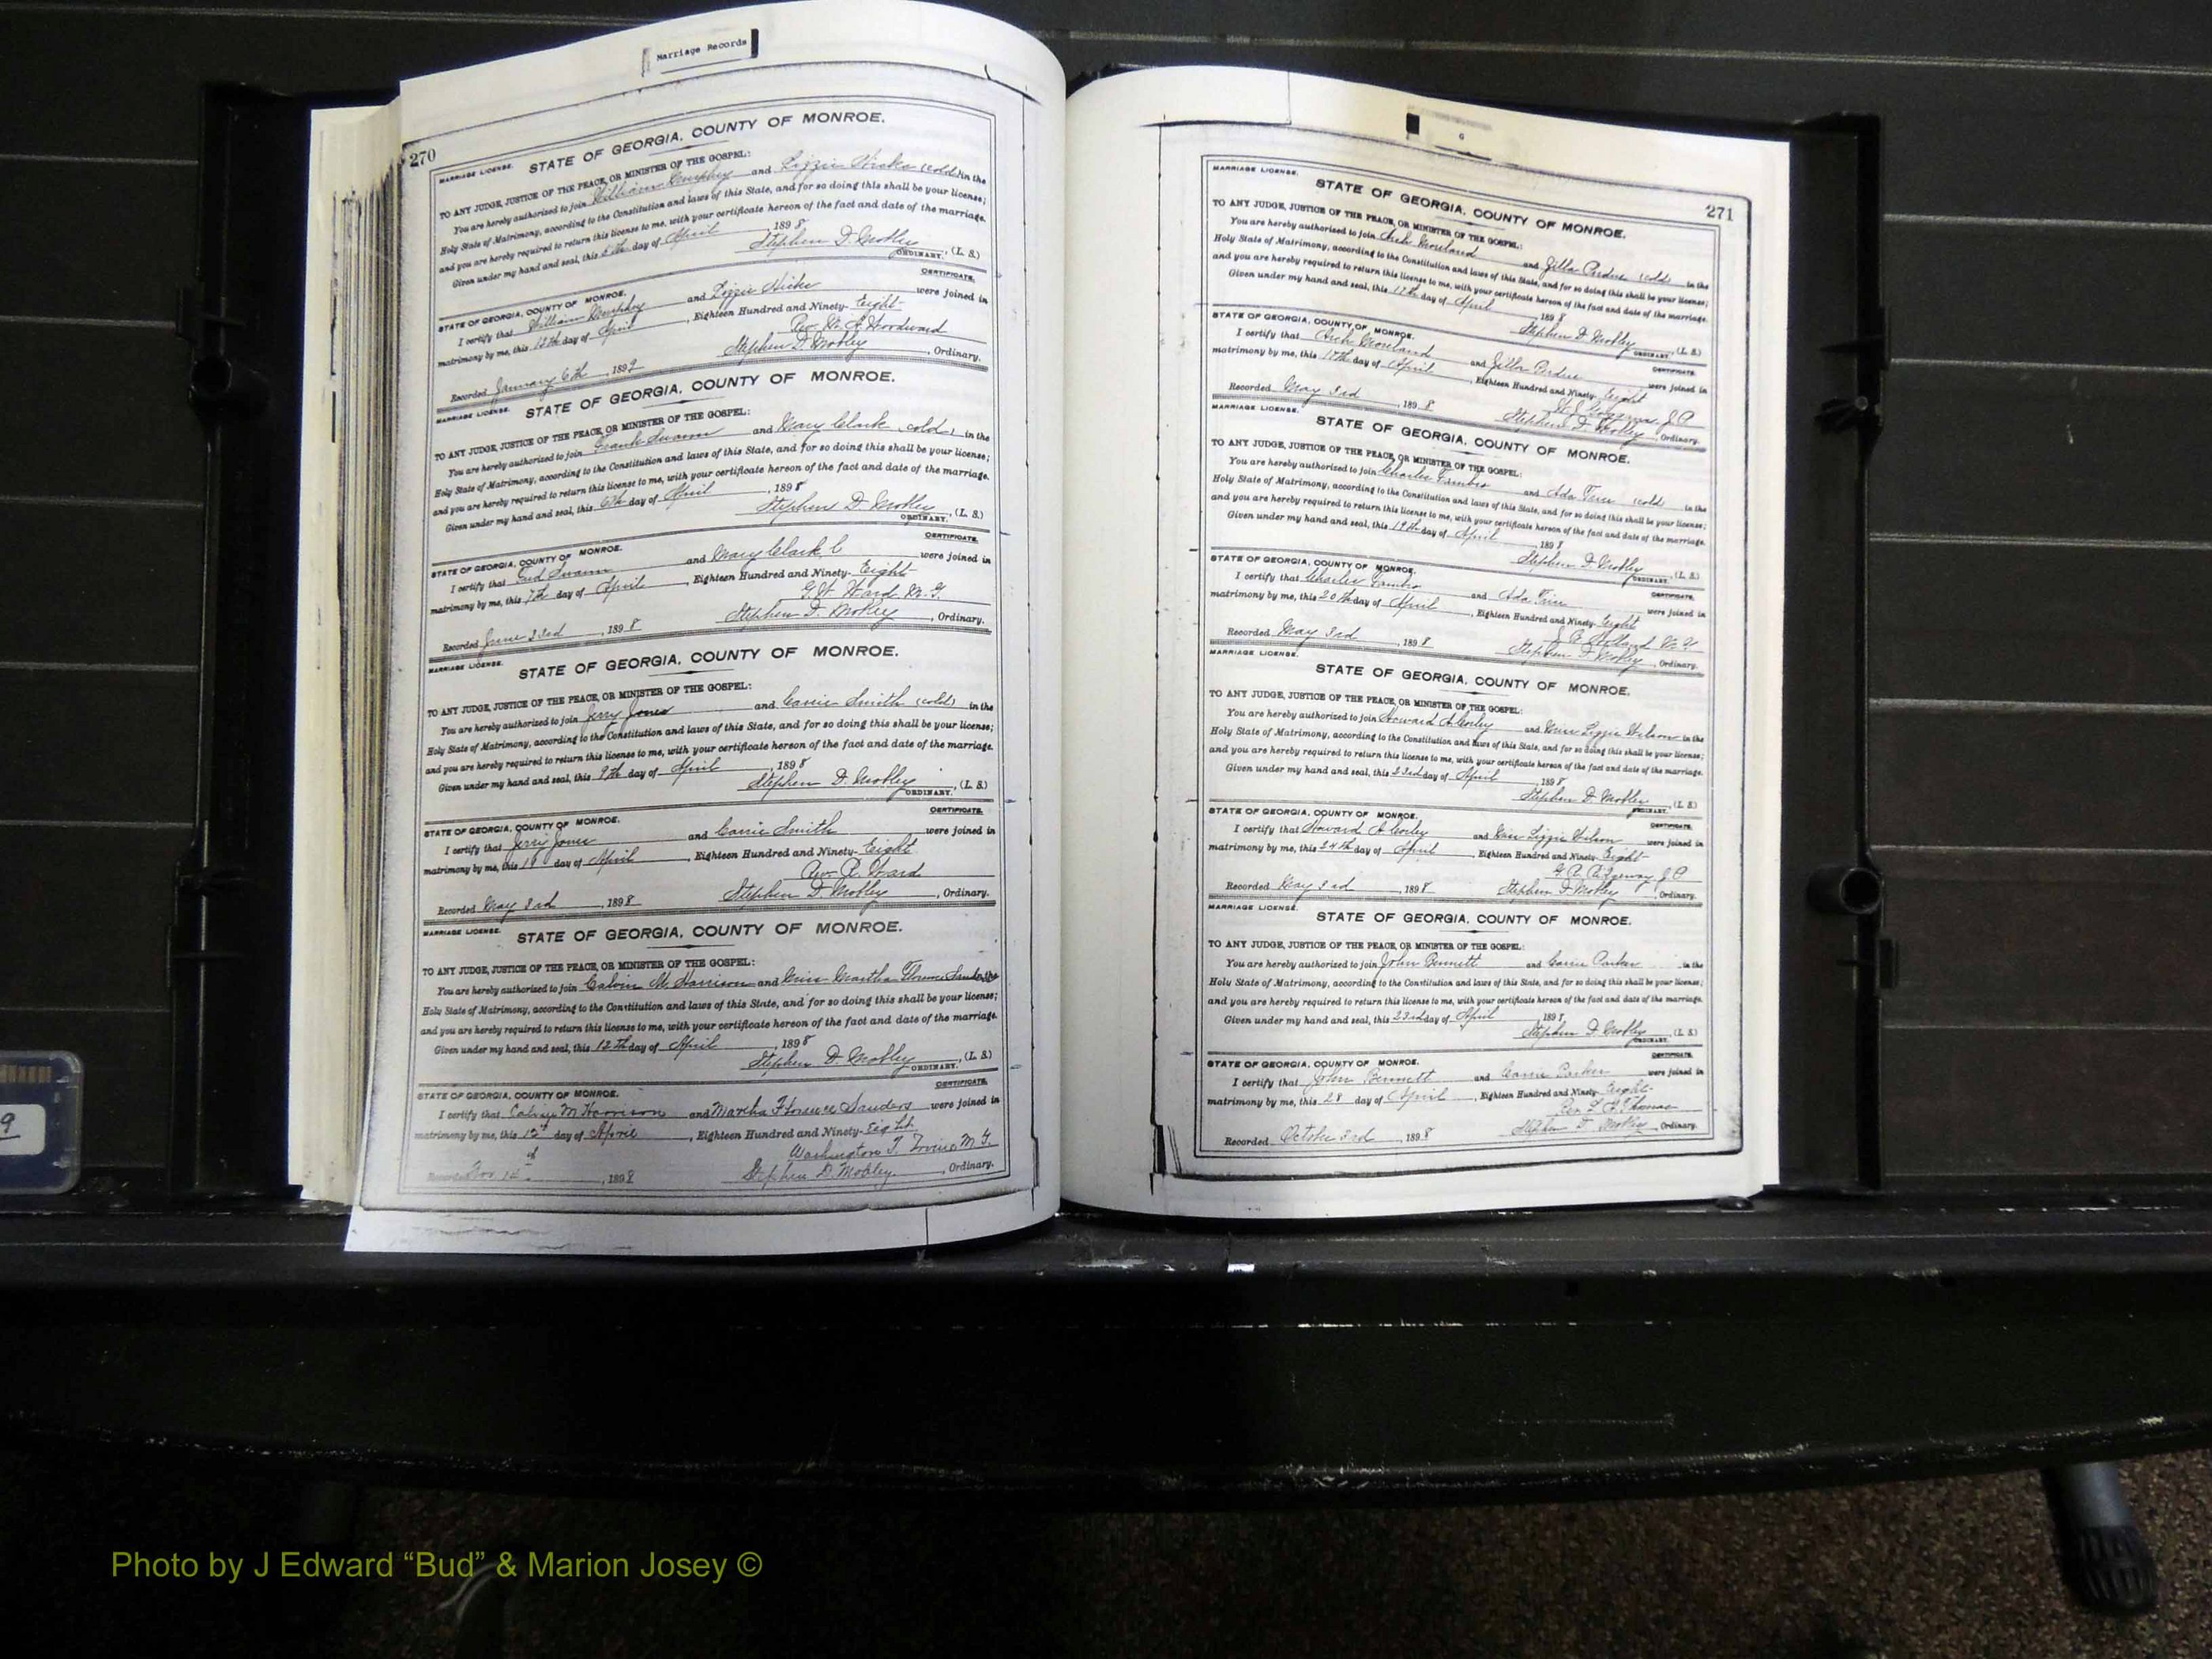 Marriage Records
270
MARRIAGE LICENSE. STATE OF GEORGIA, COUNTY OF MONROE.
TO ANY JUDGE, JUSTICE OF THE PEACE, OR MINISTER OF THE GOSPEL:
You are hereby authorized to join William and Lizzie Hicks (cold) in the
Holy State of Matrimony, according to the Constitution and laws of this State, and for so doing this shall be your license;
and you are hereby required to return this license to me, with your certificate hereon of the fact and date of the marriage.
Given under my hand and seal, this 5th day of April, 1898
Stephen D. Mobley, (L. S.)
ORDINARY.
CERTIFICATE.
STATE OF GEORGIA, COUNTY OF MONROE.
I certify that William and Lizzie Hicks were joined in
matrimony by me, this 13th day of April, Eighteen Hundred and Ninety-Eight
Rev. Woodward
Recorded January 6th, 1899 Stephen D. Mobley, Ordinary.
MARRIAGE LICENSE. STATE OF GEORGIA, COUNTY OF MONROE.
TO ANY JUDGE, JUSTICE OF THE PEACE, OR MINISTER OF THE GOSPEL:
You are hereby authorized to join Frank Swann and Mary Clark (cold) in the
Holy State of Matrimony, according to the Constitution and laws of this State, and for so doing this shall be your license;
and you are hereby required to return this license to me, with your certificate hereon of the fact and date of the marriage.
Given under my hand and seal, this 6th day of April, 1898
Stephen D. Mobley, (L. S.)
ORDINARY.
CERTIFICATE.
STATE OF GEORGIA, COUNTY OF MONROE.
I certify that Swann and Mary Clark C were joined in
matrimony by me, this 7th day of April, Eighteen Hundred and Ninety-Eight
G. W. Ward M. G.
Recorded June 23rd, 1898 Stephen D. Mobley, Ordinary.
MARRIAGE LICENSE. STATE OF GEORGIA, COUNTY OF MONROE.
TO ANY JUDGE, JUSTICE OF THE PEACE, OR MINISTER OF THE GOSPEL:
You are hereby authorized to join Jerry Jones and Carrie Smith (cold) in the
Holy State of Matrimony, according to the Constitution and laws of this State, and for so doing this shall be your license;
and you are hereby required to return this license to me, with your certificate hereon of the fact and date of the marriage.
Given under my hand and seal, this 9th day of April, 1898
Stephen D. Mobley, (L. S.)
ORDINARY.
CERTIFICATE.
STATE OF GEORGIA, COUNTY OF MONROE.
I certify that Jerry Jones and Carrie Smith were joined in
matrimony by me, this day of April, Eighteen Hundred and Ninety-Eight
Rev. R. Ward
Recorded May 3rd, 1898 Stephen D. Mobley, Ordinary.
MARRIAGE LICENSE. STATE OF GEORGIA, COUNTY OF MONROE.
TO ANY JUDGE, JUSTICE OF THE PEACE, OR MINISTER OF THE GOSPEL:
You are hereby authorized to join Calvin M. Harrison and Miss Martha Florence Sanders in the
Holy State of Matrimony, according to the Constitution and laws of this State, and for so doing this shall be your license;
and you are hereby required to return this license to me, with your certificate hereon of the fact and date of the marriage.
Given under my hand and seal, this 12th day of April, 1898
Stephen D. Mobley, (L. S.)
ORDINARY.
CERTIFICATE.
STATE OF GEORGIA, COUNTY OF MONROE.
I certify that M Harrison and Martha Florence Sanders were joined in
matrimony by me, this day of April, Eighteen Hundred and Ninety-Eight
Washington T. Irvine M. G.
Recorded Nov., 1898 Stephen D. Mobley, Ordinary.
271
MARRIAGE LICENSE.
STATE OF GEORGIA, COUNTY OF MONROE.
TO ANY JUDGE, JUSTICE OF THE PEACE, OR MINISTER OF THE GOSPEL:
You are hereby authorized to join Arch Moreland and Zilla Perdue (cold) in the
Holy State of Matrimony, according to the Constitution and laws of this State, and for so doing this shall be your license;
and you are hereby required to return this license to me, with your certificate hereon of the fact and date of the marriage.
Given under my hand and seal, this 17th day of April, 1898
Stephen D. Mobley, (L. S.)
ORDINARY.
CERTIFICATE.
STATE OF GEORGIA, COUNTY OF MONROE.
I certify that Arch Moreland and Zilla Perdue were joined in
matrimony by me, this 17th day of April, Eighteen Hundred and Ninety-Eight
J. P.
Recorded May 3rd, 1898 Stephen D. Mobley, Ordinary.
MARRIAGE LICENSE.
STATE OF GEORGIA, COUNTY OF MONROE.
TO ANY JUDGE, JUSTICE OF THE PEACE, OR MINISTER OF THE GOSPEL:
You are hereby authorized to join Charles and Ada (cold in the
Holy State of Matrimony, according to the Constitution and laws of this State, and for so doing this shall be your license;
and you are hereby required to return this license to me, with your certificate hereon of the fact and date of the marriage.
Given under my hand and seal, this 19th day of April, 1898
Stephen D. Mobley, (L. S.)
ORDINARY.
CERTIFICATE.
STATE OF GEORGIA, COUNTY OF MONROE.
I certify that Charles and Ada were joined in
matrimony by me, this 20th day of April, Eighteen Hundred and Ninety-Eight
Holland M. G.
Recorded May 3rd, 1898 Stephen D. Mobley, Ordinary.
MARRIAGE LICENSE.
STATE OF GEORGIA, COUNTY OF MONROE.
TO ANY JUDGE, JUSTICE OF THE PEACE, OR MINISTER OF THE GOSPEL:
You are hereby authorized to join Howard A Corley and Miss Lizzie Wilson in the
Holy State of Matrimony, according to the Constitution and laws of this State, and for so doing this shall be your license;
and you are hereby required to return this license to me, with your certificate hereon of the fact and date of the marriage.
Given under my hand and seal, this 23rd day of April, 1898
Stephen D. Mobley, (L. S.)
ORDINARY.
CERTIFICATE.
STATE OF GEORGIA, COUNTY OF MONROE.
I certify that Howard A Corley and Miss Lizzie Wilson were joined in
matrimony by me, this 24th day of April, Eighteen Hundred and Ninety-Eight
Ridgeway J P
Recorded May 3rd, 1898 Stephen D. Mobley, Ordinary.
MARRIAGE LICENSE.
STATE OF GEORGIA, COUNTY OF MONROE.
TO ANY JUDGE, JUSTICE OF THE PEACE, OR MINISTER OF THE GOSPEL:
You are hereby authorized to join John Bennett and Carrie Parker in the
Holy State of Matrimony, according to the Constitution and laws of this State, and for so doing this shall be your license;
and you are hereby required to return this license to me, with your certificate hereon of the fact and date of the marriage.
Given under my hand and seal, this 23rd day of April, 1898
Stephen D. Mobley, (L. S.)
ORDINARY.
CERTIFICATE.
STATE OF GEORGIA, COUNTY OF MONROE.
I certify that John Bennett and Carrie Parker were joined in
matrimony by me, this 28 day of April, Eighteen Hundred and Ninety-Eight
Rev. Thomas
Recorded October 3rd, 1898 Stephen D. Mobley, Ordinary.
9
Photo by J Edward “Bud” & Marion Josey ©